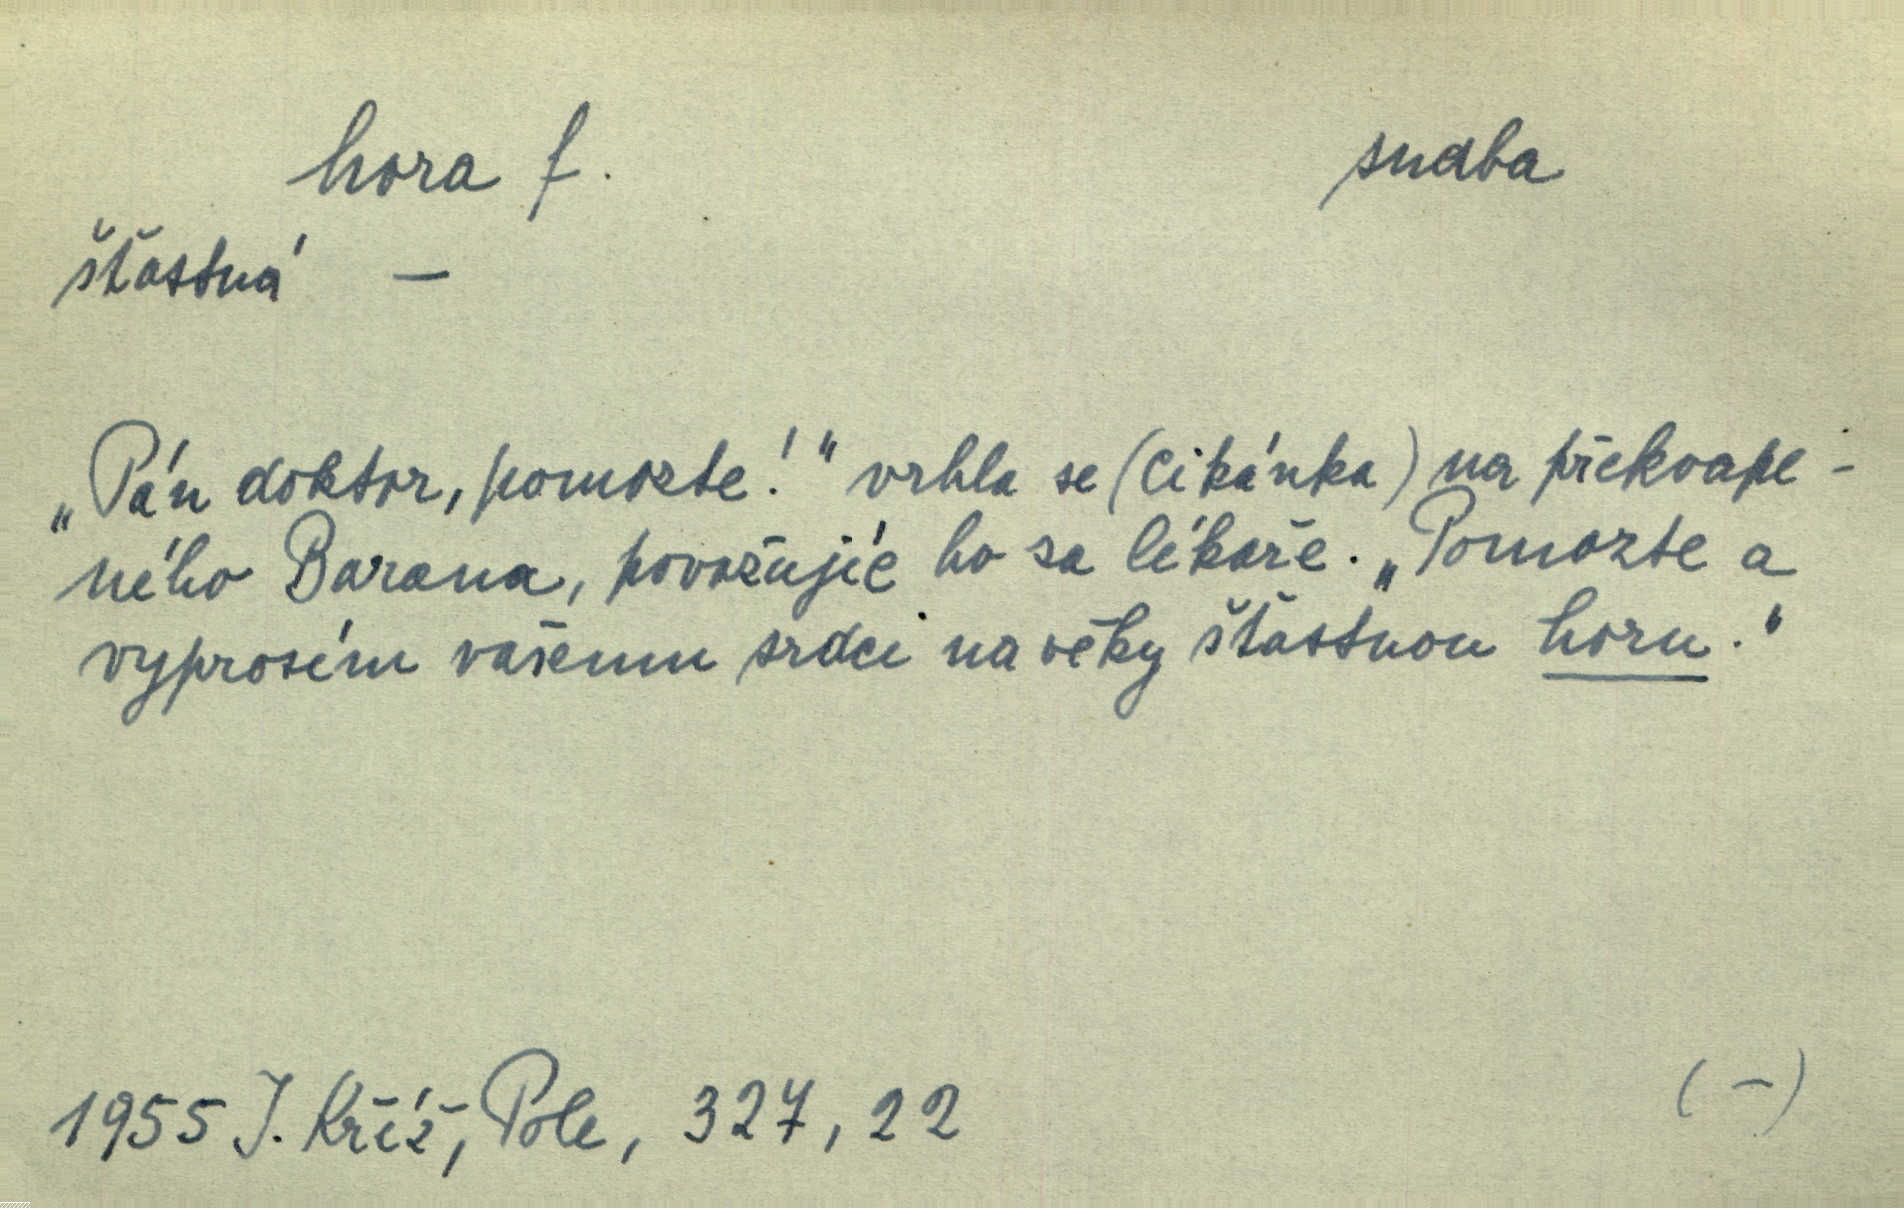 hora f. sudba
šťastná —
„Pán doktor, pomozte!" vrhla se (cikánka) na překvape-
ného Barana, považujíc ho za lékaře. „Pomozte a
vyprosím vašemu srdci na věky šťastnou horu."
1955 J. Kříž, Pole, 327, 22 (-)